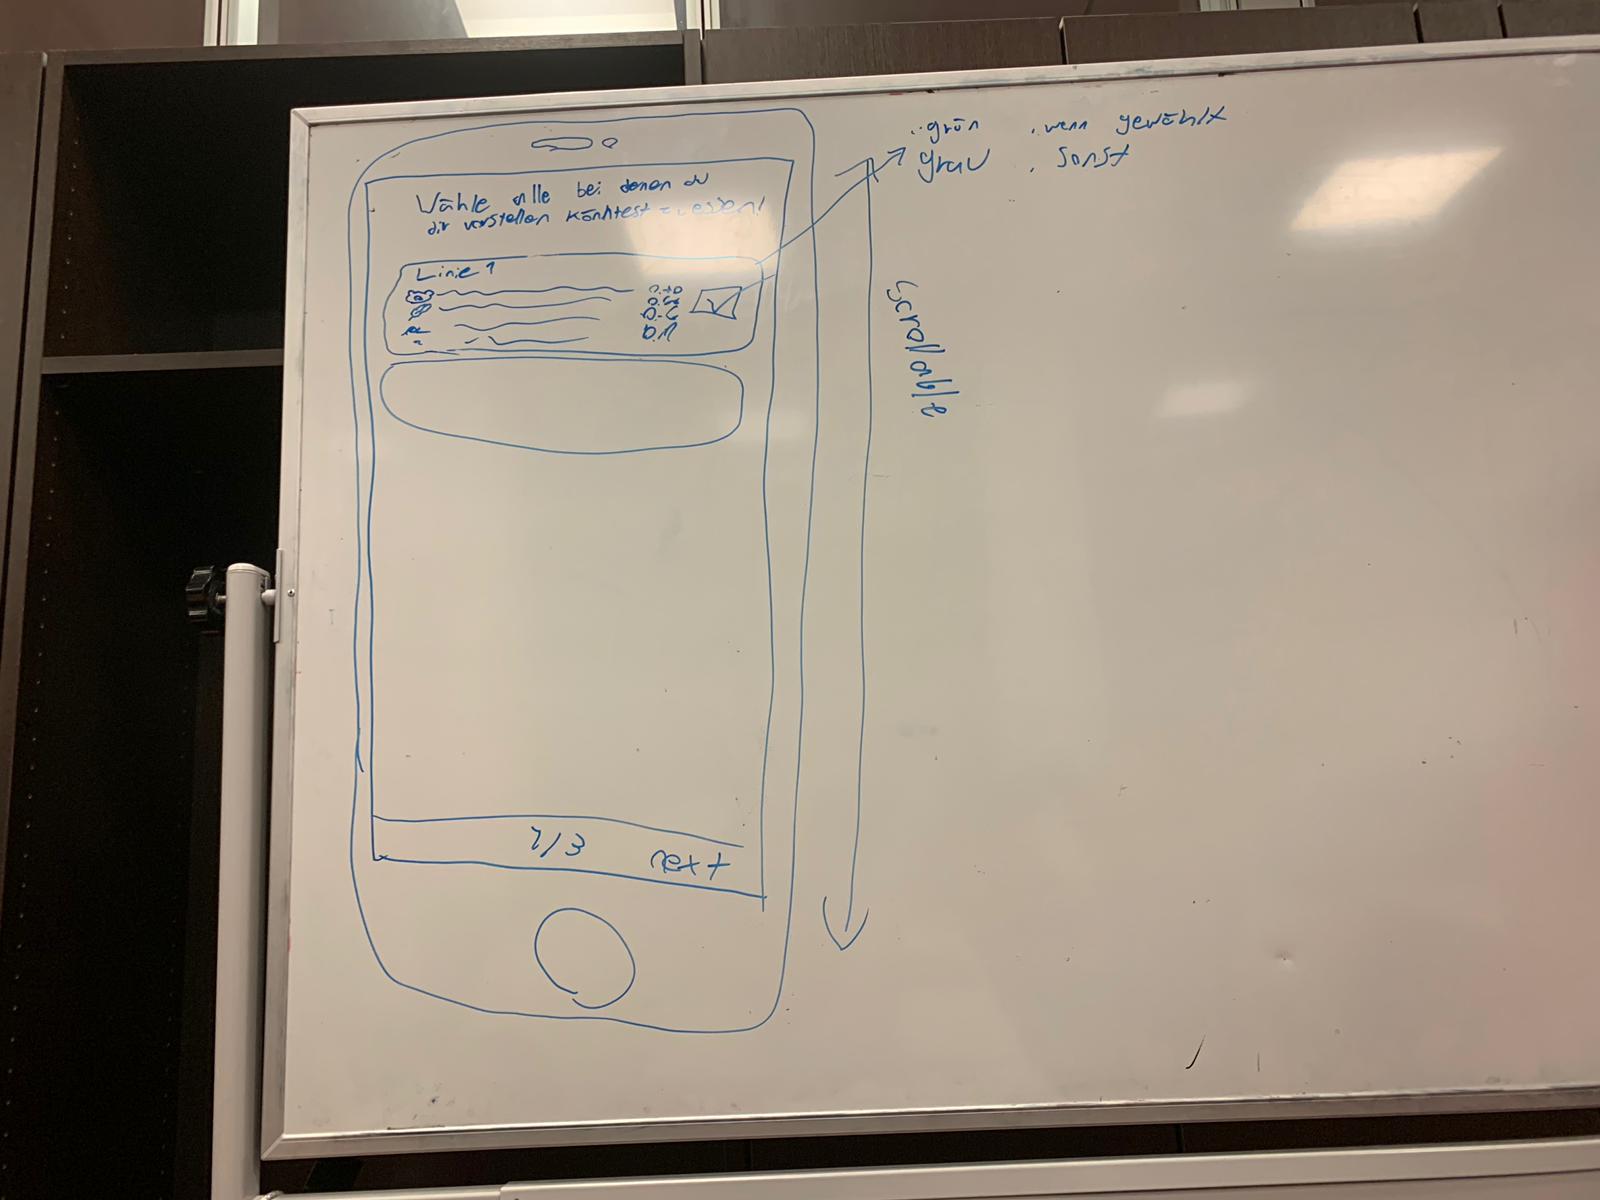 Wähle alle bei denen du
dir vorstellen könntest zu essen!
Linie 1
1/3
next
grün , wenn gewählt
grau , sonst
Scrollable